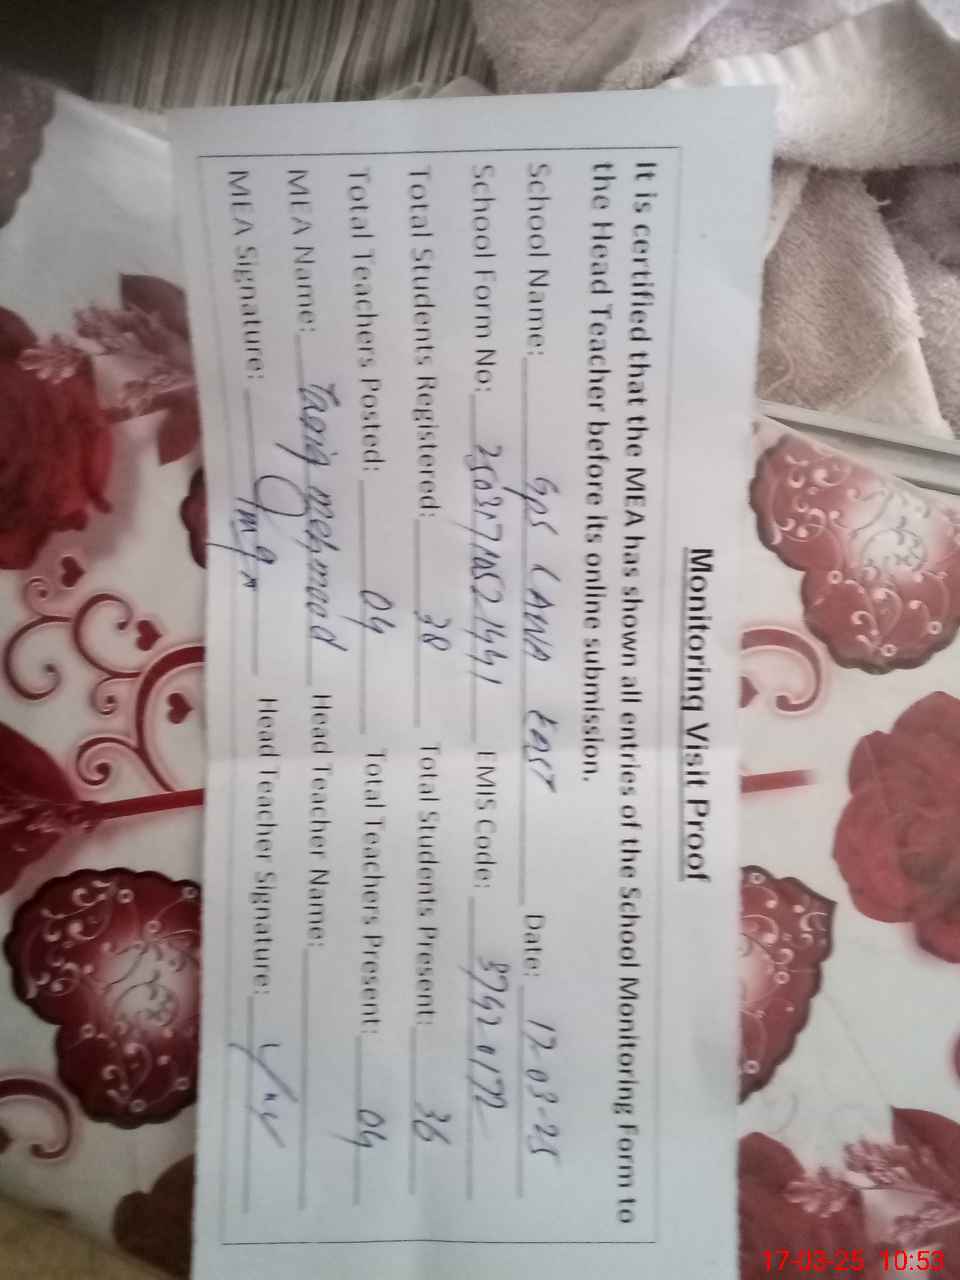 Monitoring Visit Proof
It is certified that the MEA has shown all entries of the School Monitoring Form to
the Head Teacher before its online submission.
School Name: GPS LAWA EAST Date: 17-03-25
School Form No: EMIS Code: 37420172
Total Students Registered: 38 Total Students Present: 36
Total Teachers Posted: 04 Total Teachers Present: 04
MEA Name: Tariq mehmood Head Teacher Name:
MEA Signature: Head Teacher Signature:
17-03-25 10:53